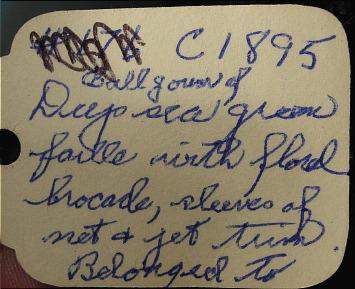 C1895
Ball gown of
Deep sea green
faille with floral
brocade, sleeves of
net & jet trim.
Belonged to